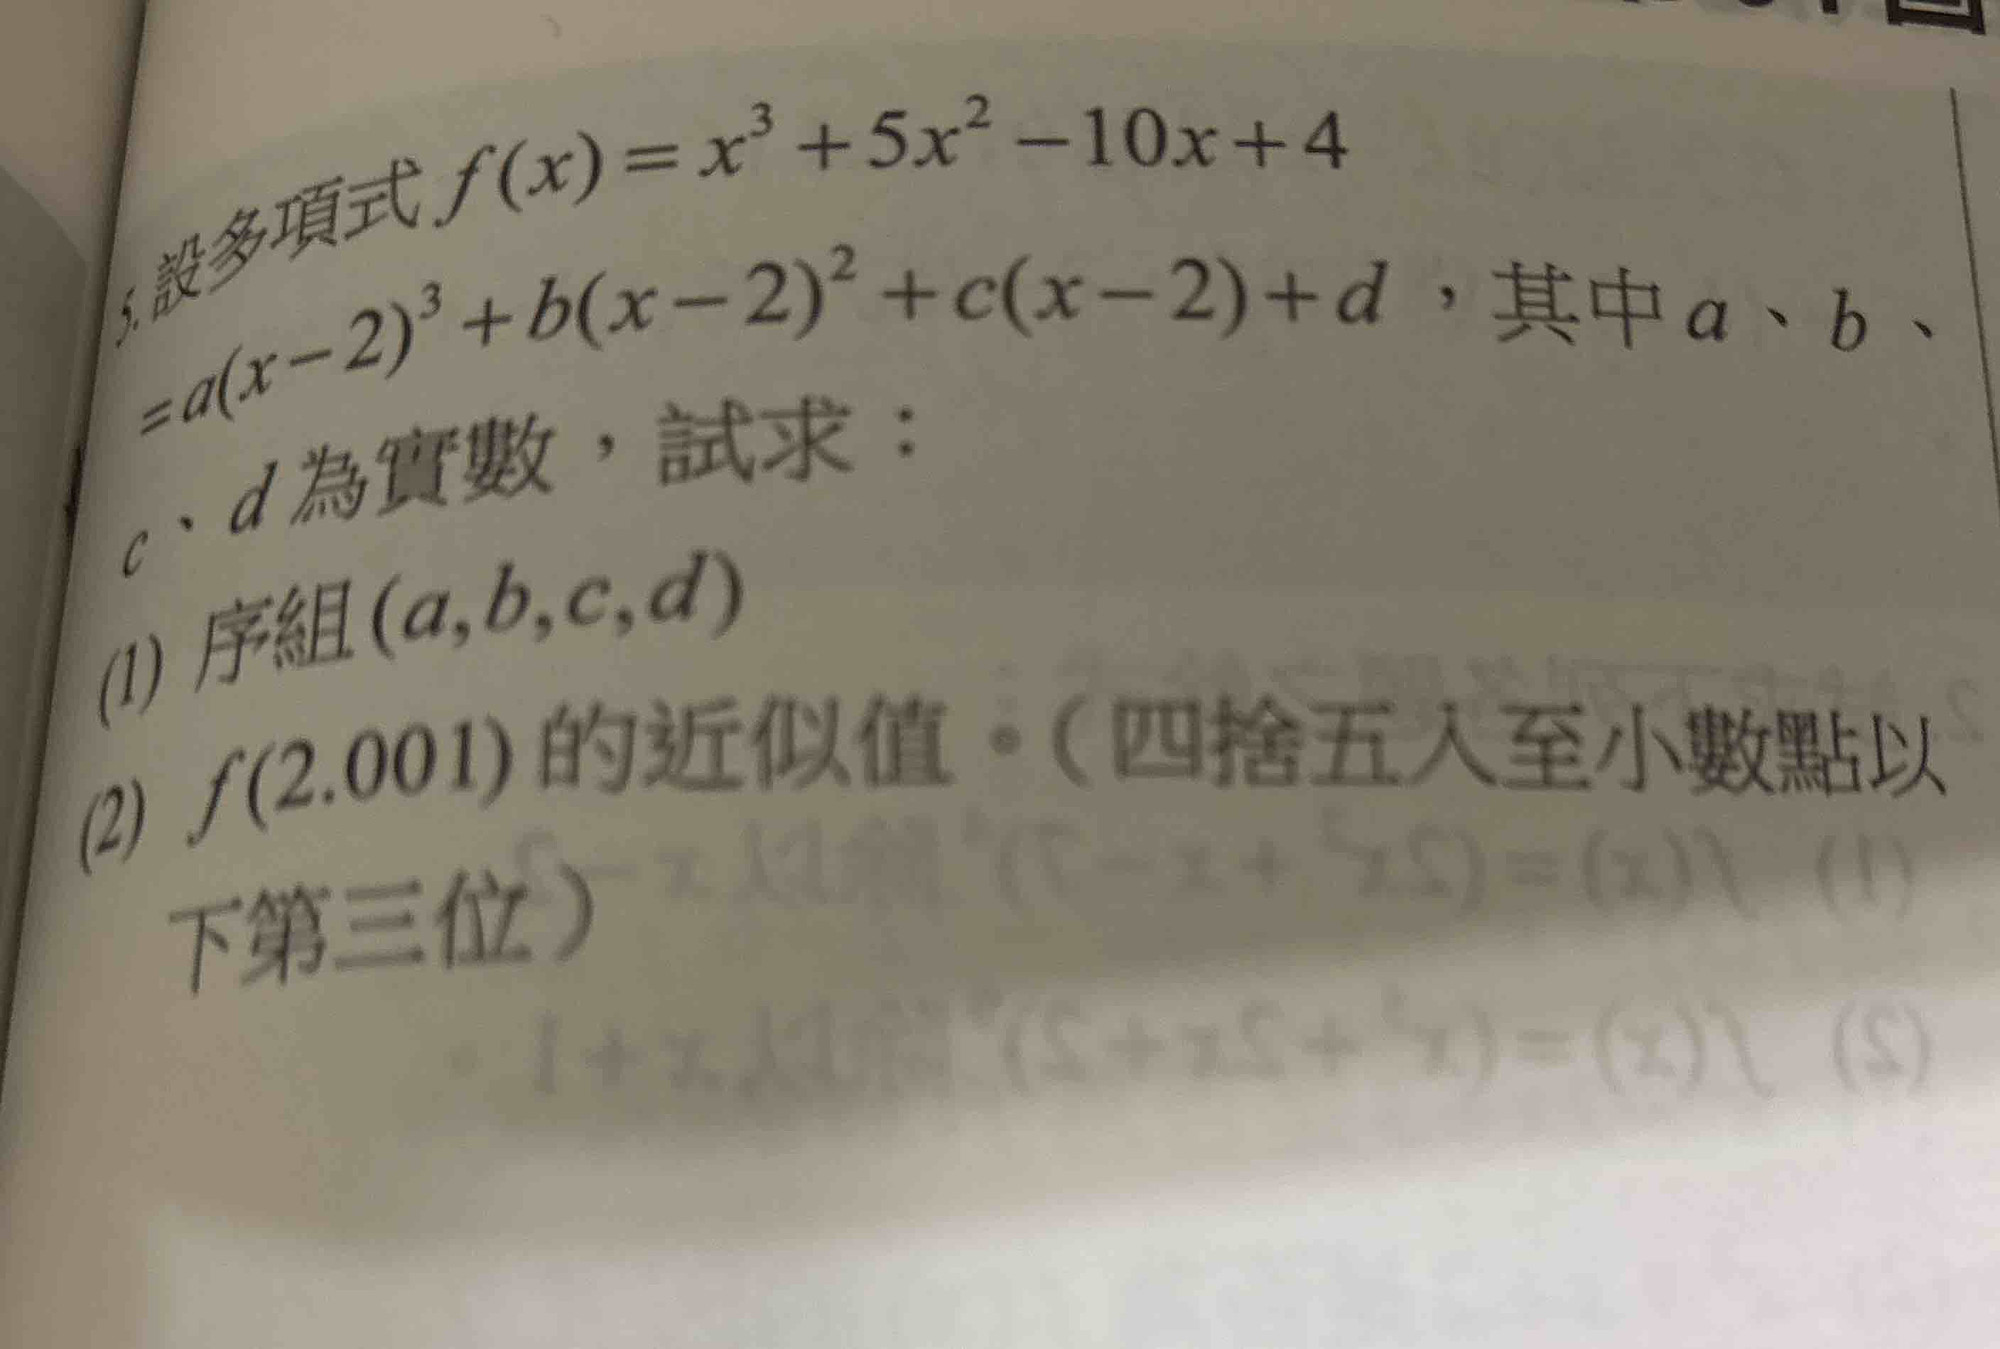 5.設多項式 f(x) = x³ + 5x² − 10x + 4
= a(x − 2)³ + b(x − 2)² + c(x − 2) + d，其中 a、b、
c、d 為實數，試求：
(1) 序組 (a,b,c,d)
(2) f(2.001) 的近似值。（四捨五入至小數點以
下第三位）